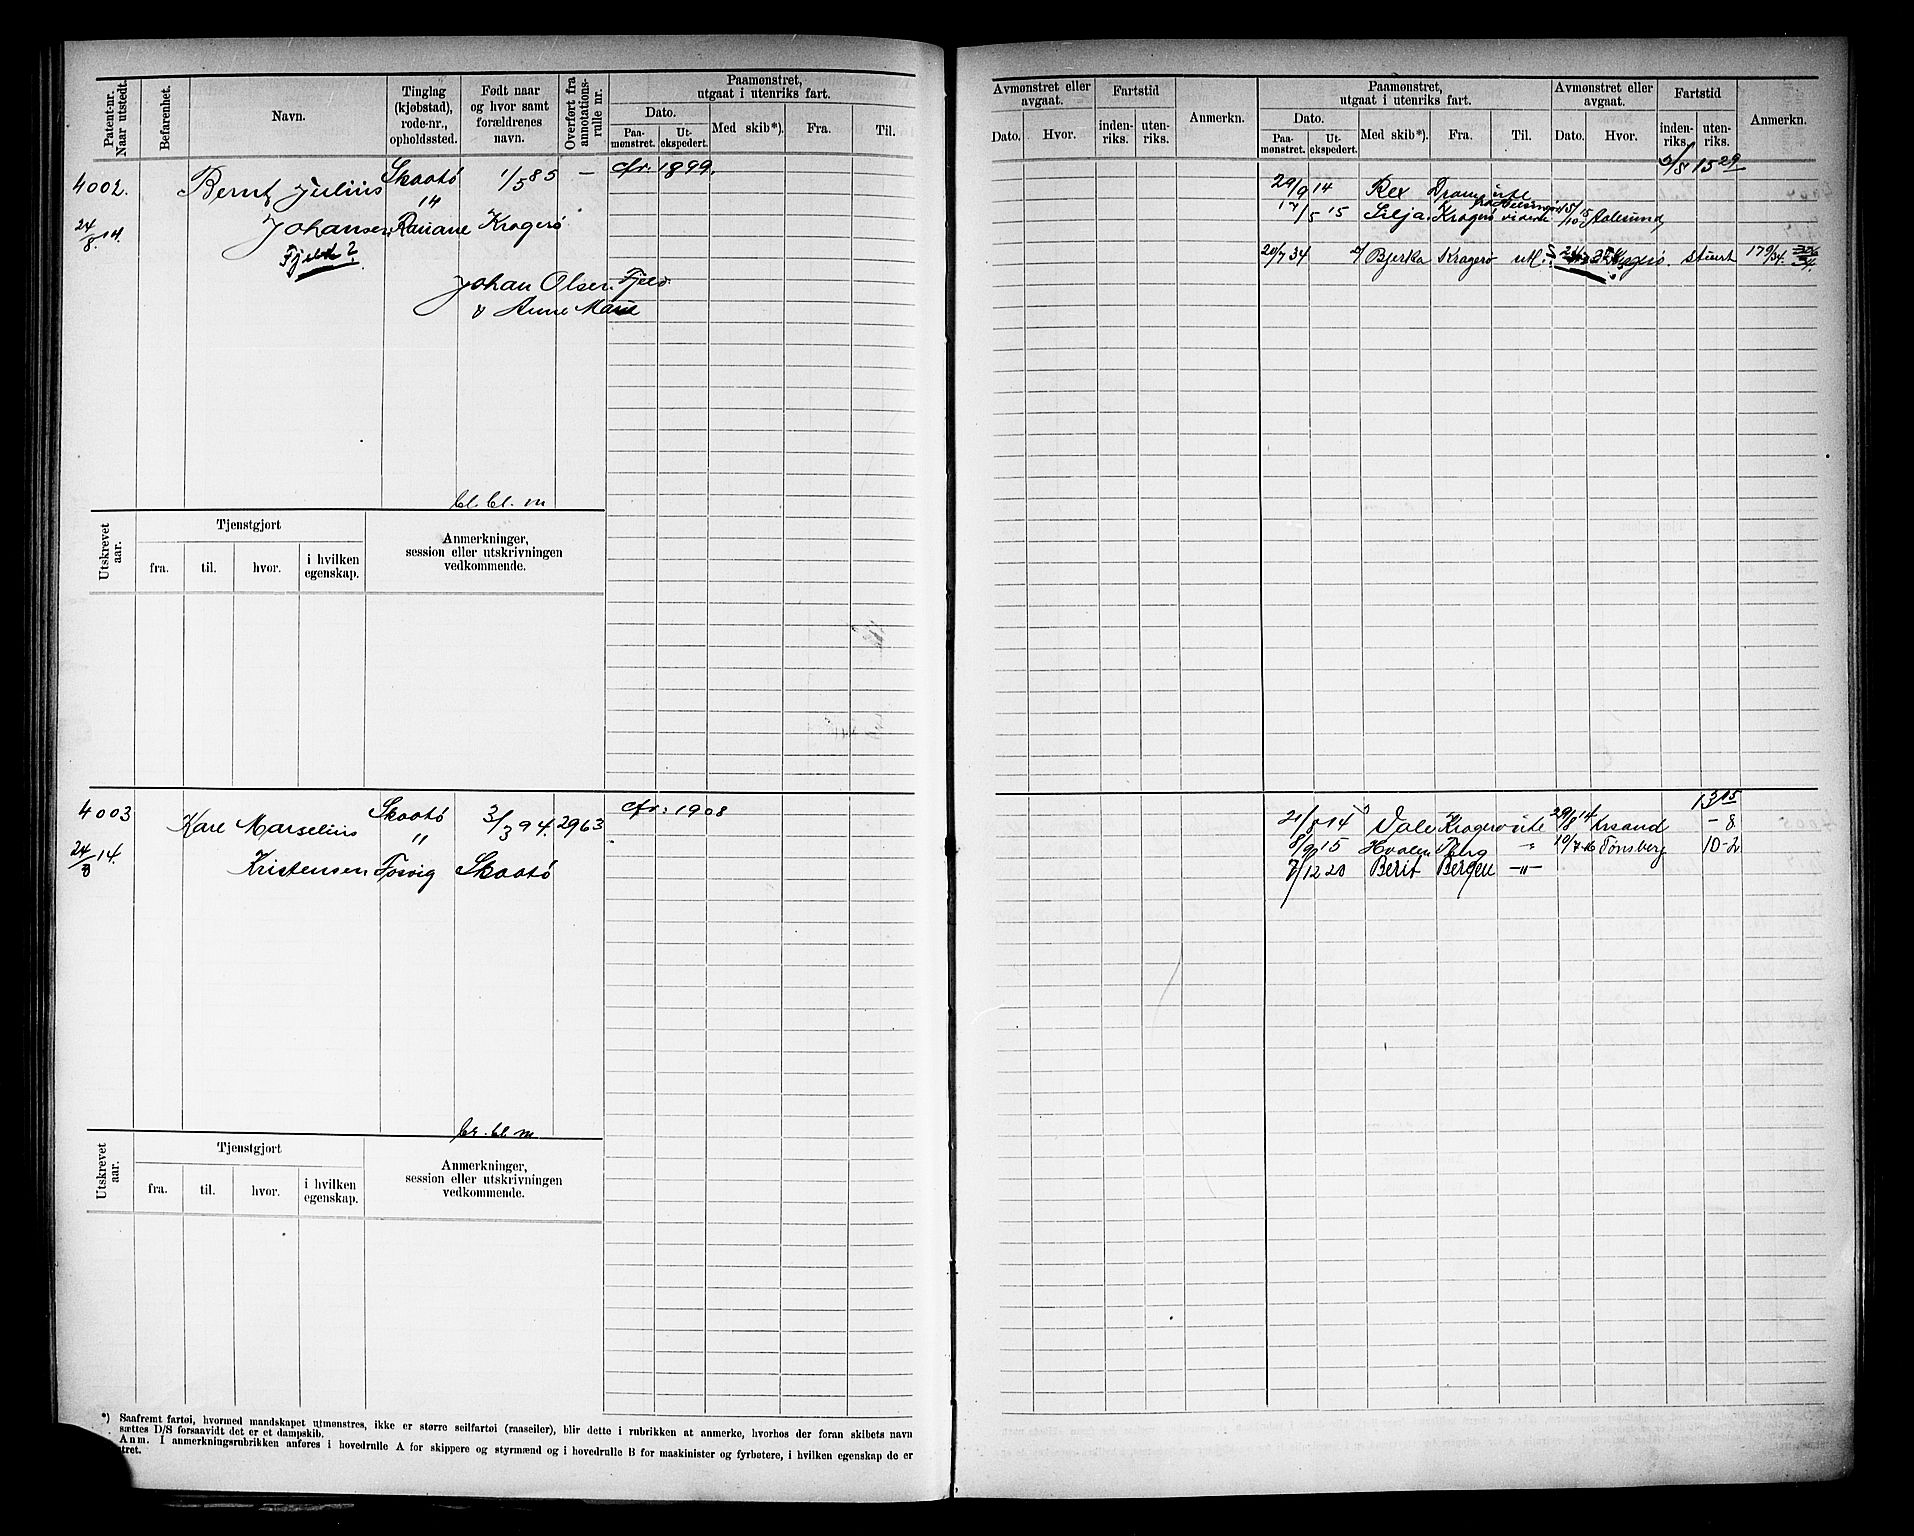 Patent-nr. Naar utstedt.
Befarenhet.
Navn.
Tinglag (kjøbstad), rode-nr., opholdssted.
Født naar og hvor samt forældrenes navn.
Overført fra annotations-rulle nr.
Paamønstret, utgaat i utenriks fart.
Dato.
Paa-mønstret.
Ut-ekspedert.
Med skib*).
Fra.
Til.
4002. Bernt Julius Skaatø 1/5 85 — fr. 1899.
24/8.14. Johansen Kragerø
Fjeld ?
Johan Olsen Fjeld
& Anne Marie
bl. bl. m
Utskrevet aar.
Tjenstgjort
fra. til. hvor. i hvilken egenskap.
Anmerkninger, session eller utskrivningen vedkommende.
4003 Kare Marselius Skaatø 3/3 94. 2963 fr: 1908
24/8 14. Kristensen Fosvig Skaatø
br. bl. m
Utskrevet aar.
Tjenstgjort
fra. til. hvor. i hvilken egenskap.
Anmerkninger, session eller utskrivningen vedkommende.
*) Saafremt fartøi, hvormed mandskapet utmønstres, ikke er større seilfartøi (raaseiler), blir dette i rubrikken at anmerke, hvorhos der foran skibets navn
sættes D/S forsaavidt det er et dampskib.
Anm. I anmerkningsrubrikken anføres i hovedrulle A for skippere og styrmænd og i hovedrulle B for maskinister og fyrbøtere, i hvilken egenskap de er
tret.
Avmønstret eller avgaat.
Dato. Hvor.
Fartstid
inden-riks. uten-riks.
Anmerkn.
Paamønstret, utgaat i utenriks fart.
Dato.
Paa-mønstret.
Ut-ekspedert.
Med skib*). Fra. Til.
Avmønstret eller avgaat.
Dato. Hvor.
Fartstid
inden-riks. uten-riks.
Anmerkn.
15 29
29/9 14 Rex Dram ute
17/5 15 Silja Kragerø videre 15/10 15 Aalesund
20/7 34 Bjerka Kragerø utl. Kragerø. stuert 179/34.
13 15
21/8 14 Vale Kragerø ute 29/8 14 Krsand – 8
8/9 15 Hvalen Tbrg " 19/7 16 Tønsberg 10-2
7/12 20 Berit Bergen —"—